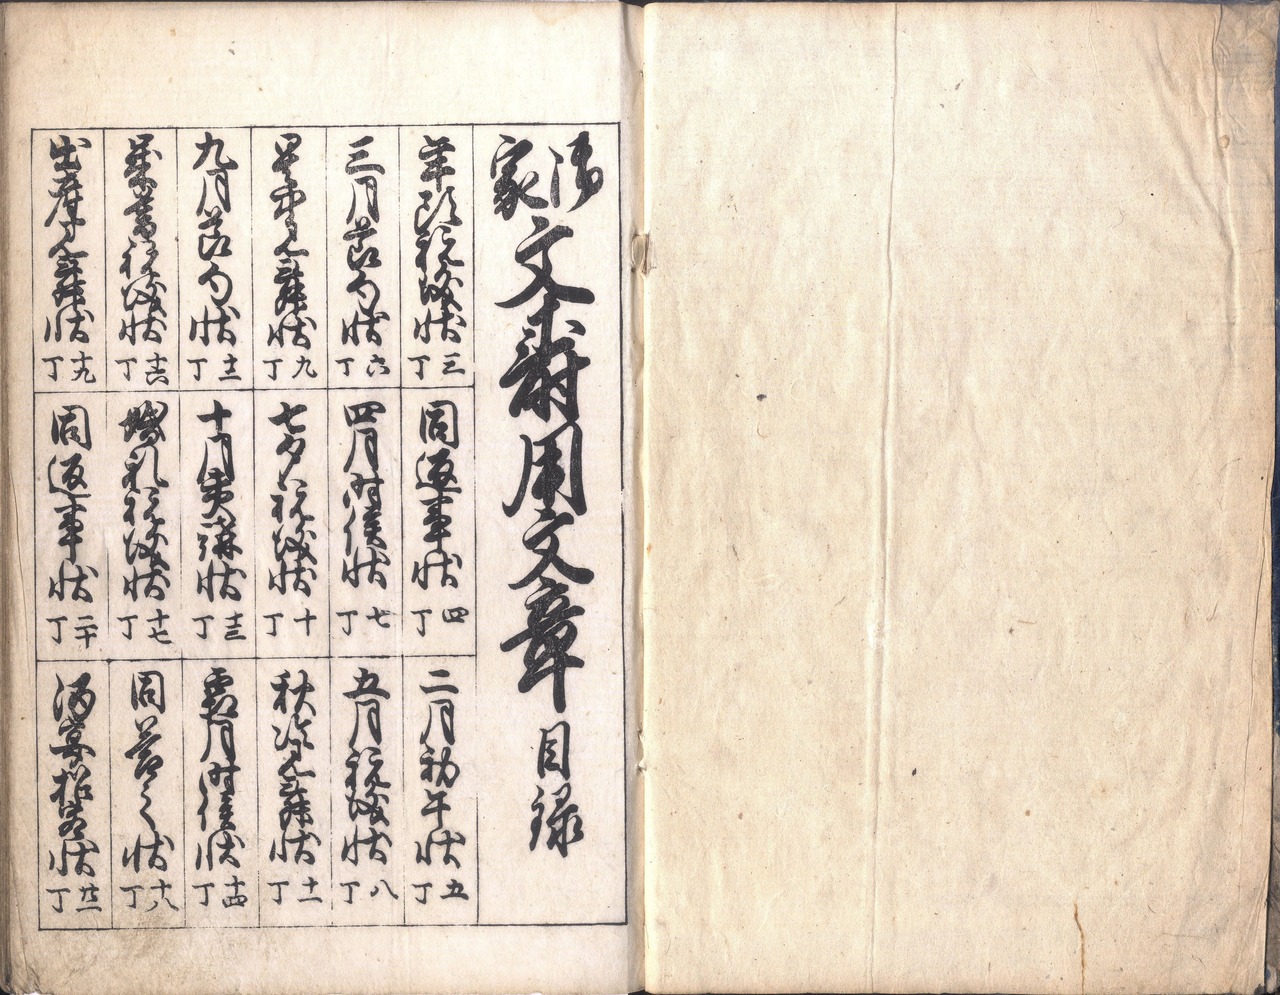 御家 文寿用文章 目録
年頭祝儀状 三丁
同返事状 四丁
二月初午状 五丁
三月節句状 六丁
四月時候状 七丁
五月祝儀状 八丁
暑中見舞状 九丁
七夕祝儀状 十丁
秋冷見舞状 十一丁
九月節句状 十二丁
十月夷講状 十三丁
霜月時候状 十四丁
歳暮祝儀状 十六丁
婚礼祝儀状 十七丁
同答之状 十八丁
出産見舞状 十九丁
同返事状 二十丁
酒宴招客状 廿一丁